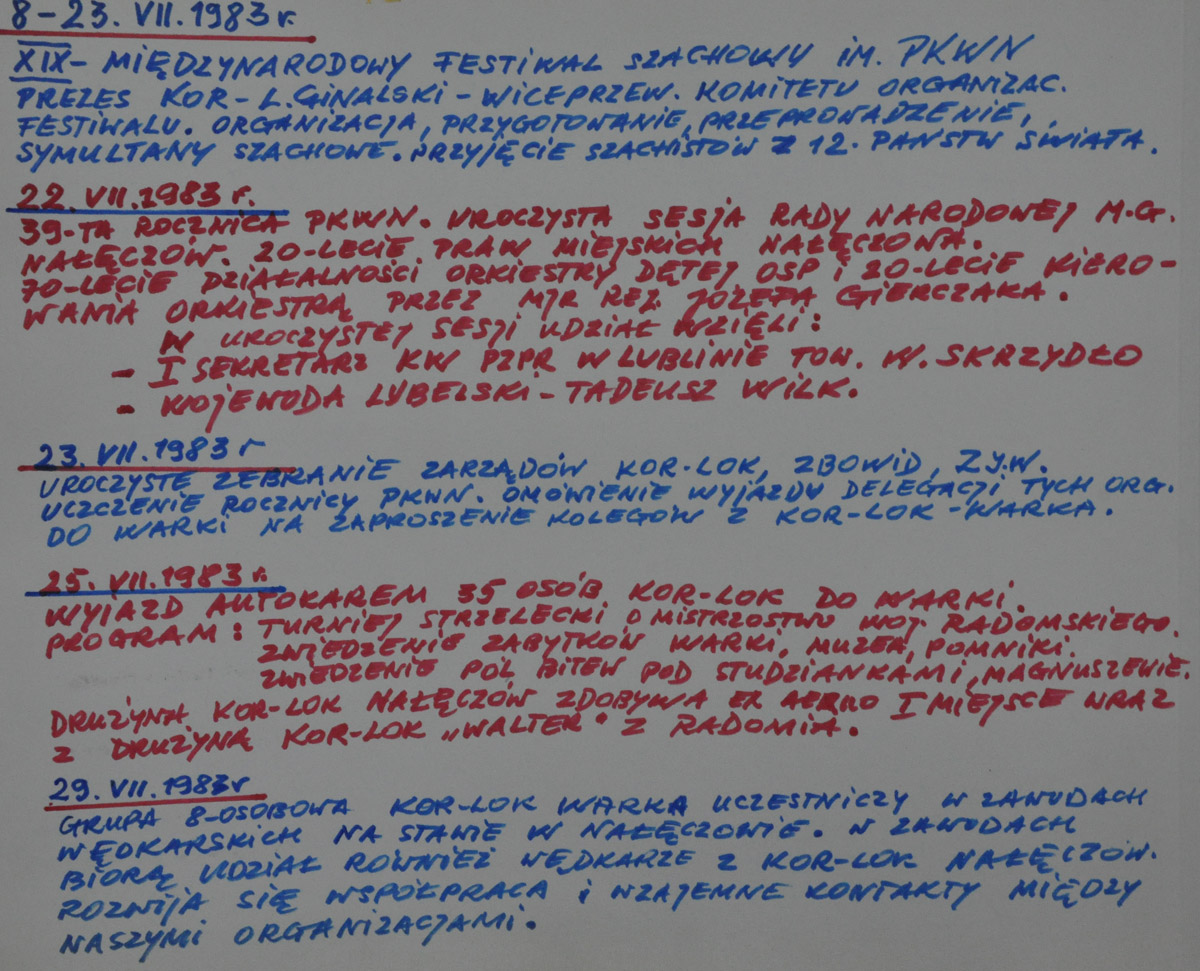 8-23. VII. 1983 r.
XIX - MIĘDZYNARODOWY FESTIWAL SZACHOWY IM. PKWN
PREZES KOR-L.GINALSKI - WICEPRZEW. KOMITETU ORGANIZAC.
FESTIWALU. ORGANIZACJA, PRZYGOTOWANIE, PRZEPROWADZENIE,
SYMULTANY SZACHOWE. PRZYJĘCIE SZACHISTÓW Z 12. PAŃSTW ŚWIATA.
22. VII. 1983 r.
39-TA ROCZNICA PKWN. UROCZYSTA SESJA RADY NARODOWEJ M.G.
NAŁĘCZÓW. 20-LECIE PRAW MIEJSKICH NAŁĘCZOWA.
70-LECIE DZIAŁALNOŚCI ORKIESTRY DĘTEJ OSP i 20-LECIE KIERO-
WANIA ORKIESTRĄ PRZEZ MJR REZ. JÓZEFA GIERCZAKA.
W UROCZYSTEJ SESJI UDZIAŁ WZIĘLI:
- I SEKRETARZ KW PZPR W LUBLINIE TOW. W. SKRZYDŁO
- WOJEWODA LUBELSKI - TADEUSZ WILK.
23. VII. 1983 r
UROCZYSTE ZEBRANIE ZARZĄDÓW KOR-LOK, ZBOWID, Z.J.W.
UCZCZENIE ROCZNICY PKWN. OMÓWIENIE WYJAZDU DELEGACJI TYCH ORG.
DO WARKI NA ZAPROSZENIE KOLEGÓW Z KOR-LOK - WARKA.
25. VII. 1983 r.
WYJAZD AUTOKAREM 35 OSÓB KOR-LOK DO WARKI.
PROGRAM: TURNIEJ STRZELECKI O MISTRZOSTWO WOJ. RADOMSKIEGO.
ZWIEDZENIE ZABYTKÓW WARKI, MUZEA, POMNIKI.
ZWIEDZENIE PÓL BITEW POD STUDZIANKAMI, MAGNUSZEWIE.
DRUŻYNA KOR-LOK NAŁĘCZÓW ZDOBYWA EX AEQUO I MIEJSCE WRAZ
Z DRUŻYNĄ KOR-LOK „WALTER" Z RADOMIA.
29. VII. 1983 r
GRUPA 8-OSOBOWA KOR-LOK WARKA UCZESTNICZY W ZAWODACH
WĘDKARSKICH NA STAWIE W NAŁĘCZOWIE. W ZAWODACH
BIORĄ UDZIAŁ RÓWNIEŻ WĘDKARZE Z KOR-LOK NAŁĘCZÓW.
ROZWIJA SIĘ WSPÓŁPRACA i WZAJEMNE KONTAKTY MIĘDZY
NASZYMI ORGANIZACJAMI.